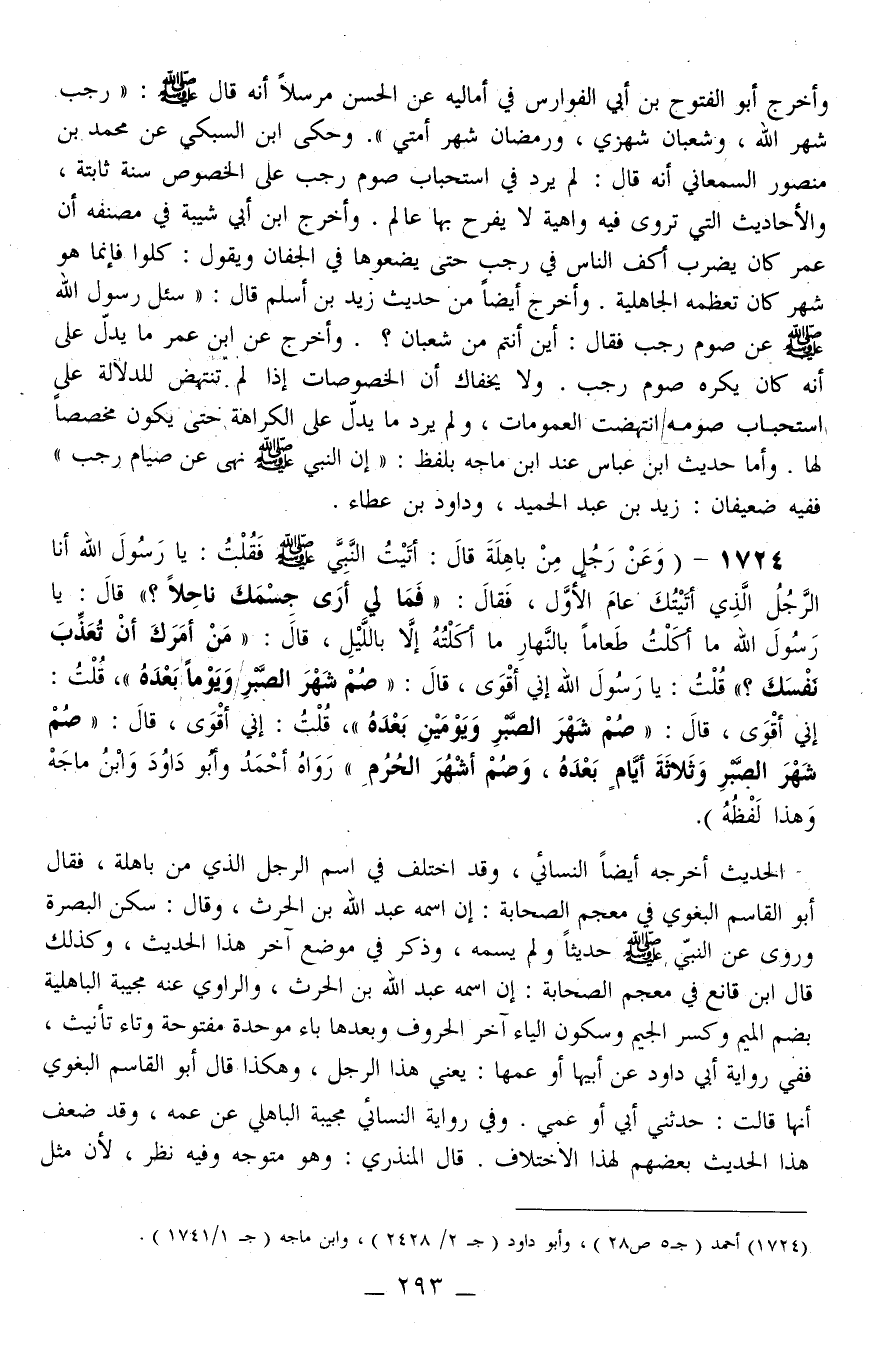 وأخرج أبو الفتوح بن أبي الفوارس في أماليه عن الحسن مرسلاً أنه قال ﷺ : « رجب
شهر الله ، وشعبان شهزي ، ورمضان شهر أمتي ». وحكى ابن السبكي عن محمد بن
منصور السمعاني أنه قال : لم يرد في استحباب صوم رجب على الخصوص سنة ثابتة ،
والأحاديث التي تروى فيه واهية لا يفرح بها عالم . وأخرج ابن أبي شيبة في مصنفه أن
عمر كان يضرب أكف الناس في رجب حتى يضعوها في الجفان ويقول : كلوا فإنما هو
شهر كان تعظمه الجاهلية . وأخرج أيضاً من حديث زيد بن أسلم قال : « سئل رسول الله
ﷺ عن صوم رجب فقال : أين أنتم من شعبان ؟ . وأخرج عن ابن عمر ما يدلّ على
أنه كان يكره صوم رجب . ولا يخفاك أن الخصوصات إذا لم تنتهض للدلالة على
استحباب صومه/انتهضت العمومات ، ولم يرد ما يدلّ على الكراهة حتى يكون مخصصاً
لها . وأما حديث ابن عباس عند ابن ماجه بلفظ : « إن النبي ﷺ نهى عن صيام رجب »
ففيه ضعيفان : زيد بن عبد الحميد ، وداود بن عطاء .
١٧٢٤ – ( وَعَنْ رَجُلٍ مِنْ باهِلَةَ قالَ : أتَيْتُ النَّبِيَّ ﷺ فَقُلْتُ : يا رَسُولَ الله أنا
الرَّجُلُ الَّذِي أتَيْتُكَ عامَ الأوَّلِ ، فَقالَ : « فَمَا لي أرَى جِسْمَكَ ناحِلاً ؟» قالَ : يا
رَسُولَ الله ما أكَلْتُ طَعاماً بالنَّهارِ ما أكَلْتُهُ إلَّا باللَّيْلِ ، قالَ : « مَنْ أمَرَكَ أنْ تُعَذِّبَ
نَفْسَكَ ؟» قُلْتُ : يا رَسُولَ الله إني أقْوَى ، قالَ : « صُمْ شَهْرَ الصَّبْرِ/وَيَوْماً بَعْدَهُ »، قُلْتُ :
إني أقْوَى ، قالَ : « صُمْ شَهْرَ الصَّبْرِ وَيَوْمَيْنِ بَعْدَهُ »، قُلْتُ : إني أقْوَى ، قالَ : « صُمْ
شَهْرَ الصَّبْرِ وَثَلاثَةَ أيَّامٍ بَعْدَهُ ، وَصُمْ أشْهُرَ الحُرُمِ » رَوَاهُ أحْمَدُ وأبُو دَاوُدَ وَابْنُ ماجَهْ
وَهذا لَفْظُهُ ).
الحديث أخرجه أيضاً النسائي ، وقد اختلف في اسم الرجل الذي من باهلة ، فقال
أبو القاسم البغوي في معجم الصحابة : إن اسمه عبد الله بن الحرث ، وقال : سكن البصرة
وروى عن النبيّ ﷺ حديثاً ولم يسمه ، وذكر في موضع آخر هذا الحديث ، وكذلك
قال ابن قانع في معجم الصحابة : إن اسمه عبد الله بن الحرث ، والراوي عنه مجيبة الباهلية
بضم الميم وكسر الجيم وسكون الياء آخر الحروف وبعدها باء موحدة مفتوحة وتاء تأنيث ،
ففي رواية أبي داود عن أبيها أو عمها : يعني هذا الرجل ، وهكذا قال أبو القاسم البغوي
أنها قالت : حدثني أبي أو عمي . وفي رواية النسائي مجيبة الباهلي عن عمه ، وقد ضعف
هذا الحديث بعضهم لهذا الاختلاف . قال المنذري : وهو متوجه وفيه نظر ، لأن مثل
(١٧٢٤) أحمد ( جـ٥ ص٢٨ ) ، وأبو داود ( جـ ٢/ ٢٤٢٨ ) ، وابن ماجه ( جـ ١/ ١٧٤١ ) .
— ٢٩٣ —